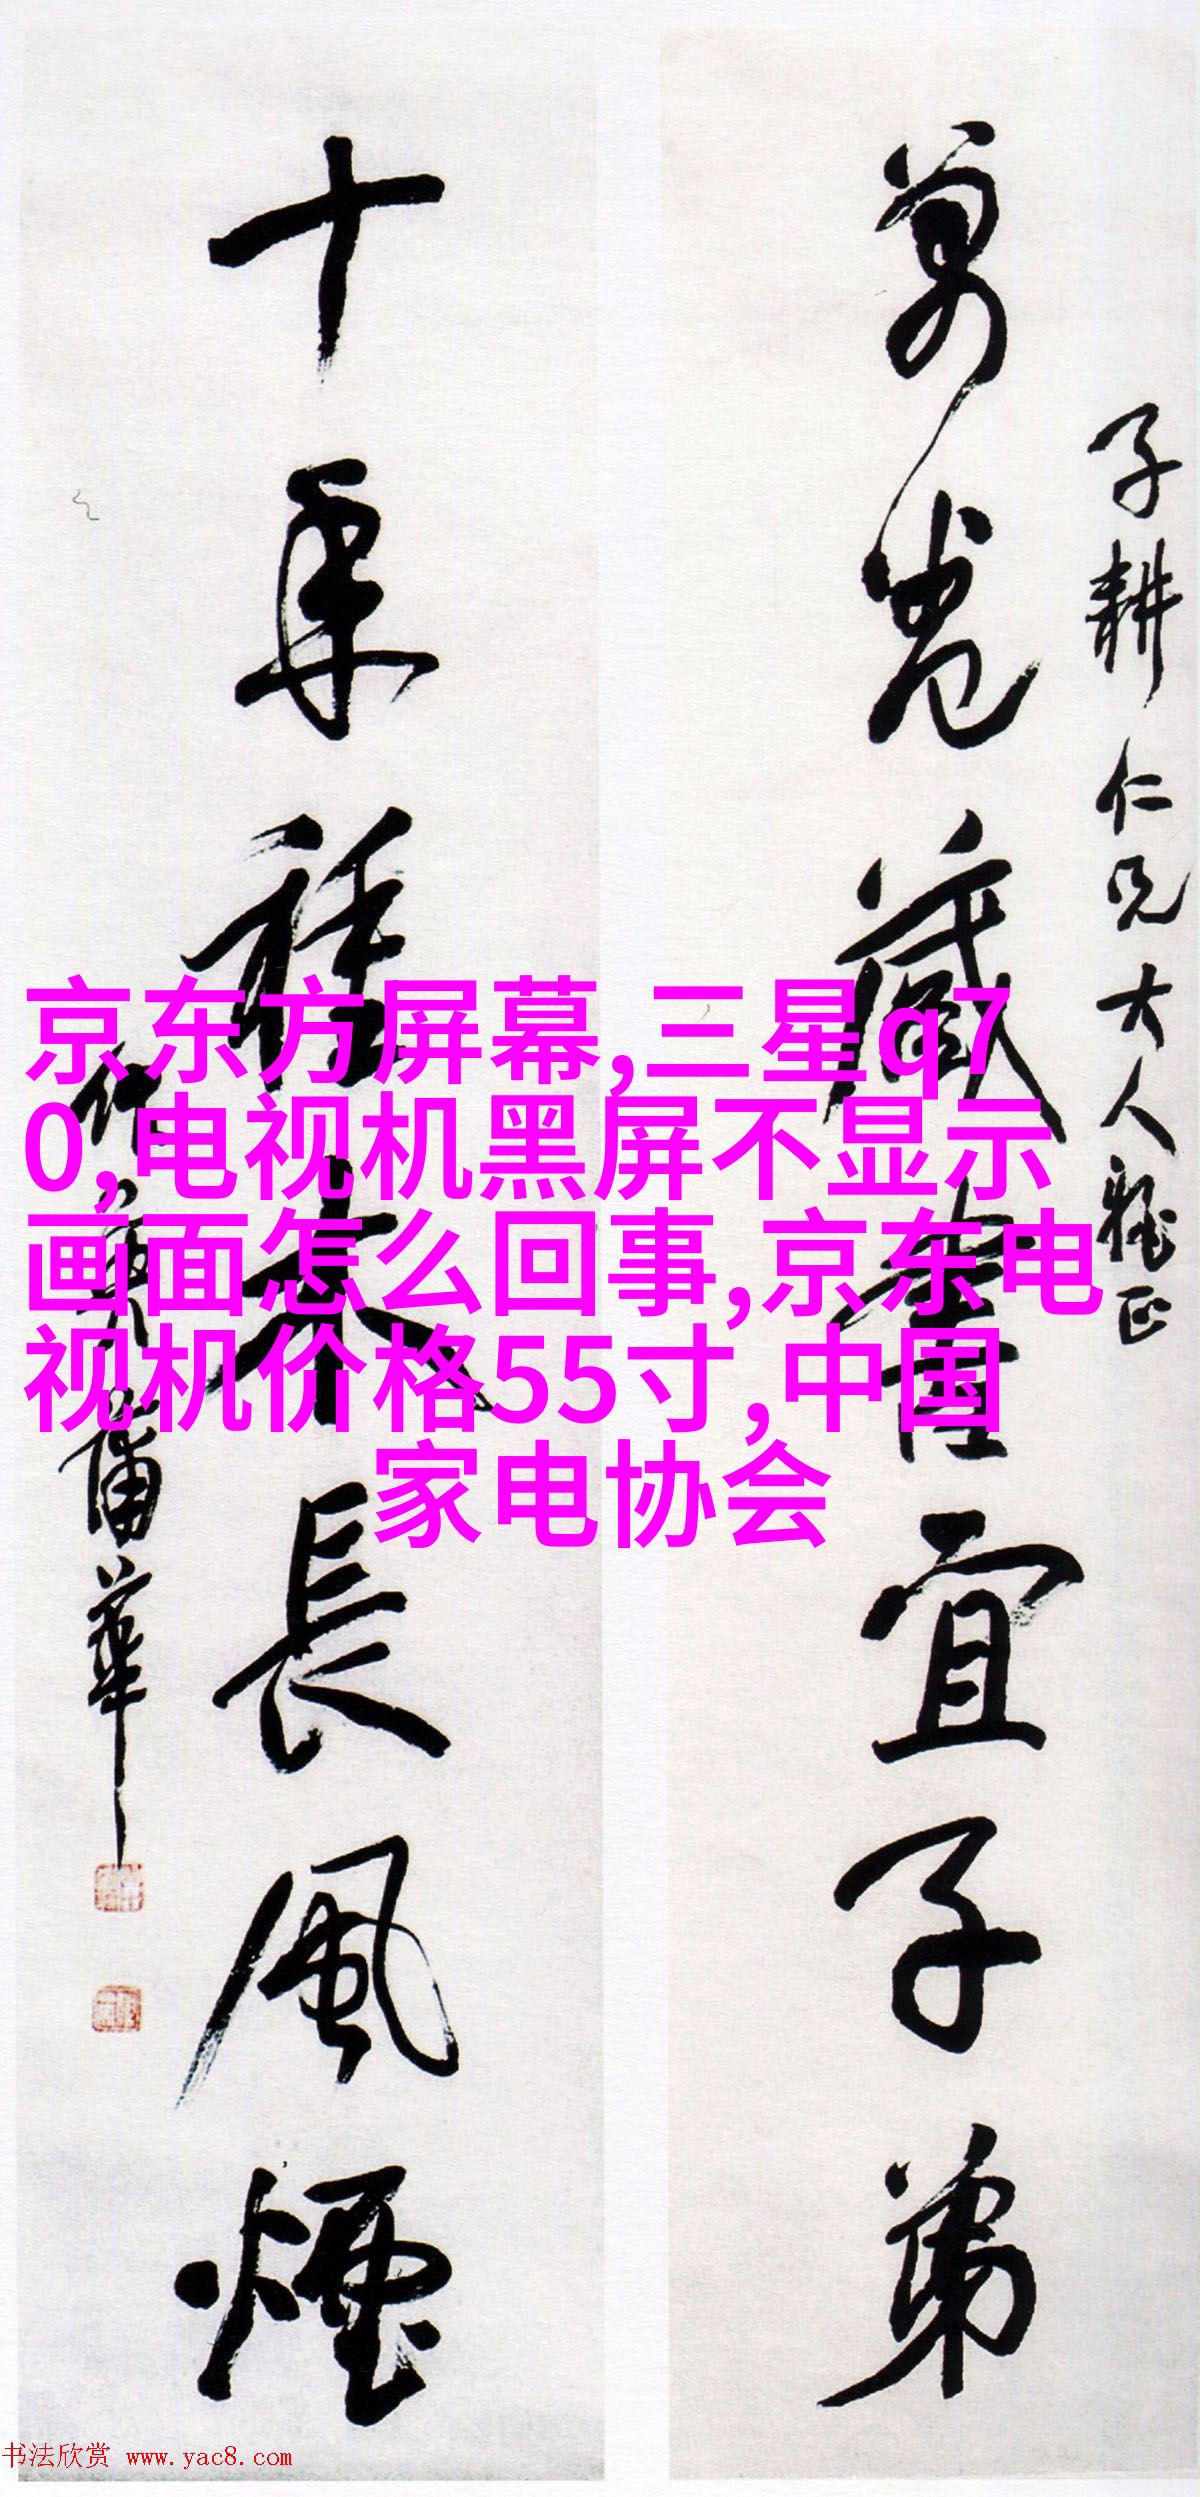 子耕仁兄大人雅正
萬卷藏書宜子弟
十年種木長風煙
作英蒲華
京东方屏幕,三星q7
0,电视机黑屏不显示
画面怎么回事,京东电
视机价格55寸,中国
家电协会
书法欣赏 www.yac8.com